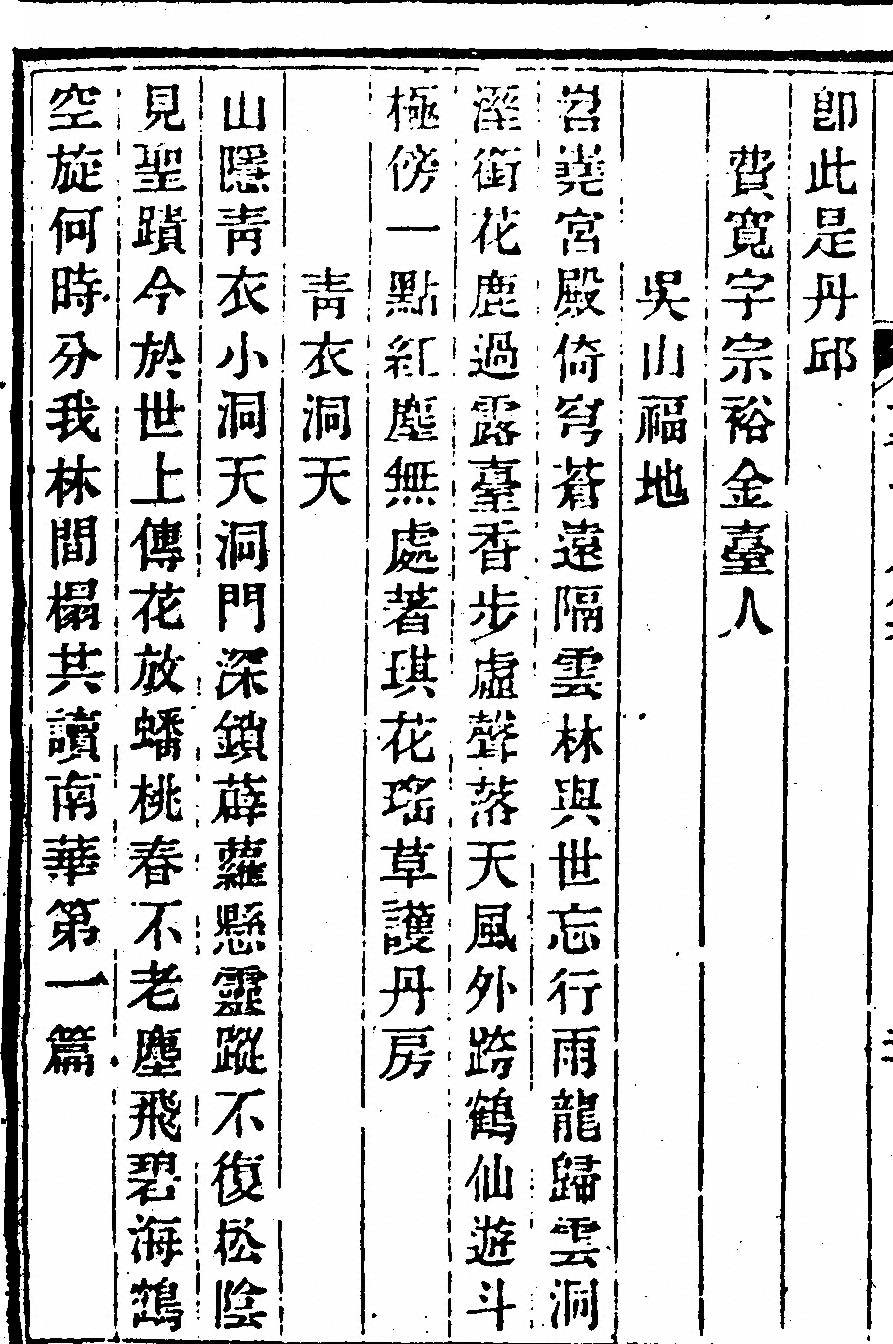 卽此是丹邱
費寬字宗裕金臺人
吳山福地
岧嶤宮殿倚穹蒼遠隔雲林與世忘行雨龍歸雲洞
溼銜花鹿過露臺香步虛聲落天風外跨鶴仙遊斗
極傍一點紅塵無處著琪花瑤草護丹房
青衣洞天
山隱青衣小洞天洞門深鎖薜蘿懸靈蹤不復松陰
見聖蹟今於世上傳花放蟠桃春不老塵飛碧海鶴
空旋何時分我林間榻共讀南華第一篇